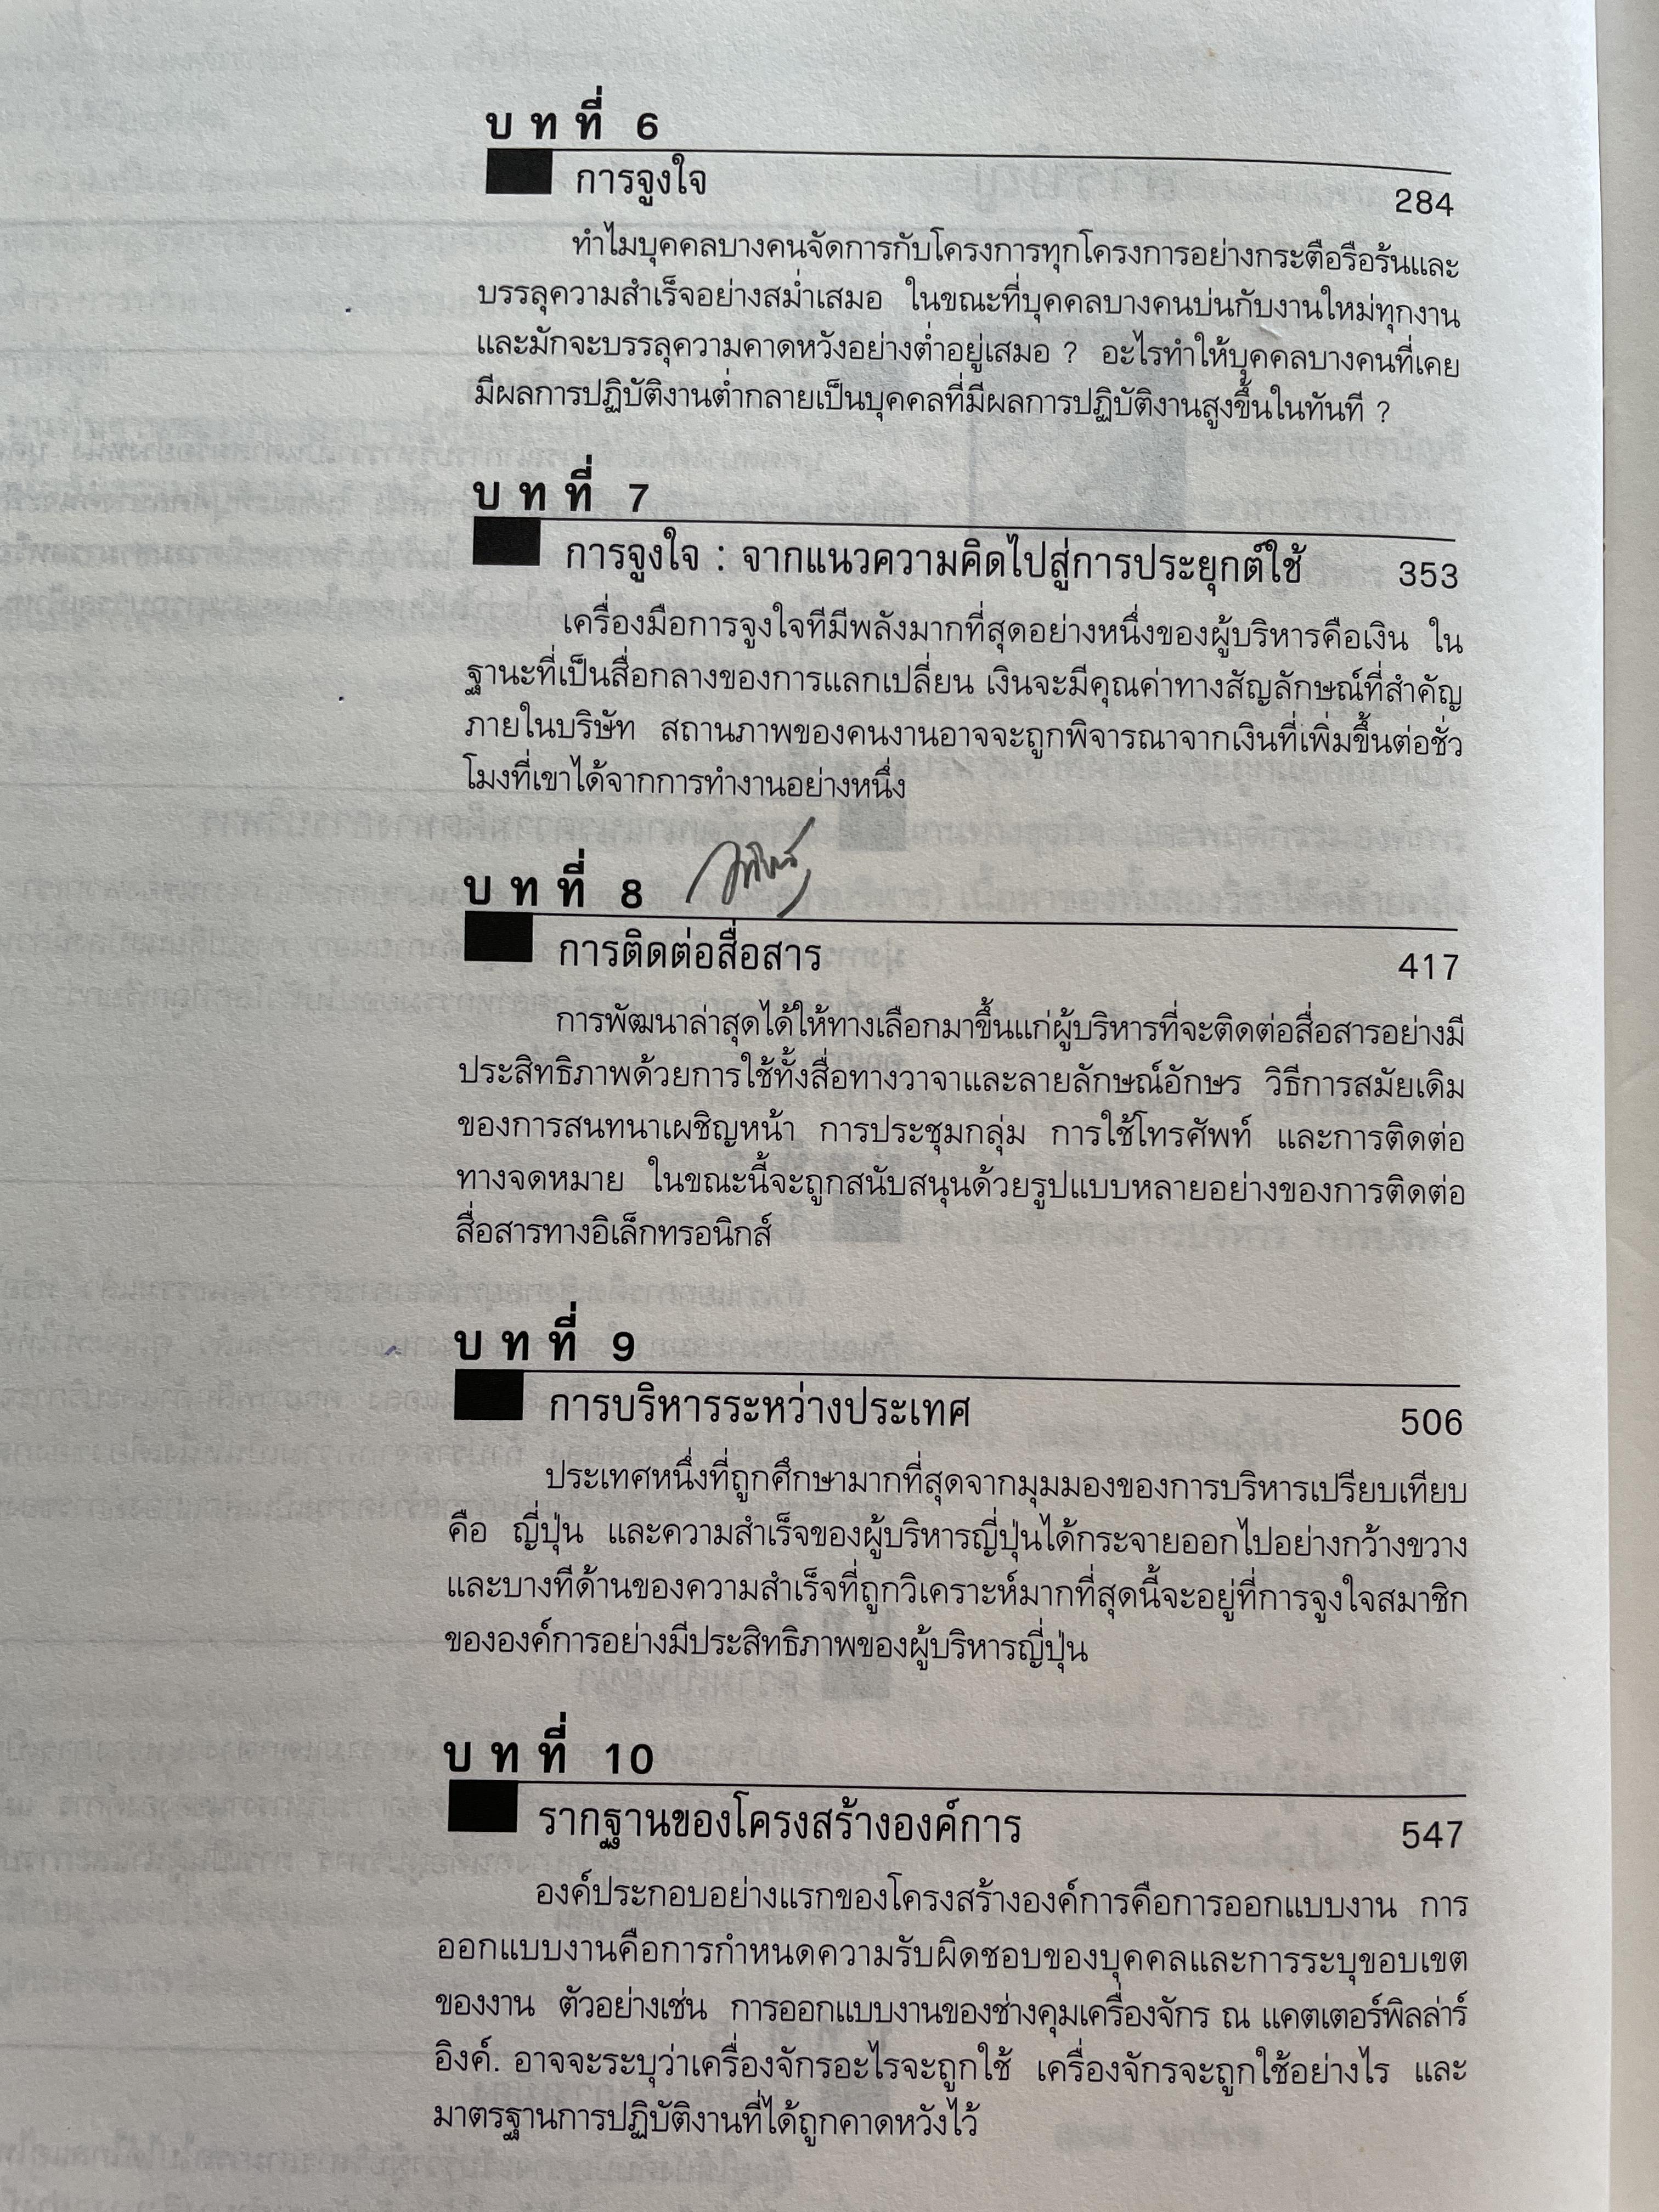 บทที่ 6
การจูงใจ 284
ทำไมบุคคลบางคนจัดการกับโครงการทุกโครงการอย่างกระตือรือร้นและ
บรรลุความสำเร็จอย่างสม่ำเสมอ ในขณะที่บุคคลบางคนบ่นกับงานใหม่ทุกงาน
และมักจะบรรลุความคาดหวังอย่างต่ำอยู่เสมอ ? อะไรทำให้บุคคลบางคนที่เคย
มีผลการปฏิบัติงานต่ำกลายเป็นบุคคลที่มีผลการปฏิบัติงานสูงขึ้นในทันที ?
บทที่ 7
การจูงใจ : จากแนวความคิดไปสู่การประยุกต์ใช้ 353
เครื่องมือการจูงใจทีมีพลังมากที่สุดอย่างหนึ่งของผู้บริหารคือเงิน ใน
ฐานะที่เป็นสื่อกลางของการแลกเปลี่ยน เงินจะมีคุณค่าทางสัญลักษณ์ที่สำคัญ
ภายในบริษัท สถานภาพของคนงานอาจจะถูกพิจารณาจากเงินที่เพิ่มขึ้นต่อชั่ว
โมงที่เขาได้จากการทำงานอย่างหนึ่ง
บทที่ 8
การติดต่อสื่อสาร 417
การพัฒนาล่าสุดได้ให้ทางเลือกมาขึ้นแก่ผู้บริหารที่จะติดต่อสื่อสารอย่างมี
ประสิทธิภาพด้วยการใช้ทั้งสื่อทางวาจาและลายลักษณ์อักษร วิธีการสมัยเดิม
ของการสนทนาเผชิญหน้า การประชุมกลุ่ม การใช้โทรศัพท์ และการติดต่อ
ทางจดหมาย ในขณะนี้จะถูกสนับสนุนด้วยรูปแบบหลายอย่างของการติดต่อ
สื่อสารทางอิเล็กทรอนิกส์
บทที่ 9
การบริหารระหว่างประเทศ 506
ประเทศหนึ่งที่ถูกศึกษามากที่สุดจากมุมมองของการบริหารเปรียบเทียบ
คือ ญี่ปุ่น และความสำเร็จของผู้บริหารญี่ปุ่นได้กระจายออกไปอย่างกว้างขวาง
และบางทีด้านของความสำเร็จที่ถูกวิเคราะห์มากที่สุดนี้จะอยู่ที่การจูงใจสมาชิก
ขององค์การอย่างมีประสิทธิภาพของผู้บริหารญี่ปุ่น
บทที่ 10
รากฐานของโครงสร้างองค์การ 547
องค์ประกอบอย่างแรกของโครงสร้างองค์การคือการออกแบบงาน การ
ออกแบบงานคือการกำหนดความรับผิดชอบของบุคคลและการระบุขอบเขต
ของงาน ตัวอย่างเช่น การออกแบบงานของช่างคุมเครื่องจักร ณ แคตเตอร์พิลล่าร์
อิงค์. อาจจะระบุว่าเครื่องจักรอะไรจะถูกใช้ เครื่องจักรจะถูกใช้อย่างไร และ
มาตรฐานการปฏิบัติงานที่ได้ถูกคาดหวังไว้